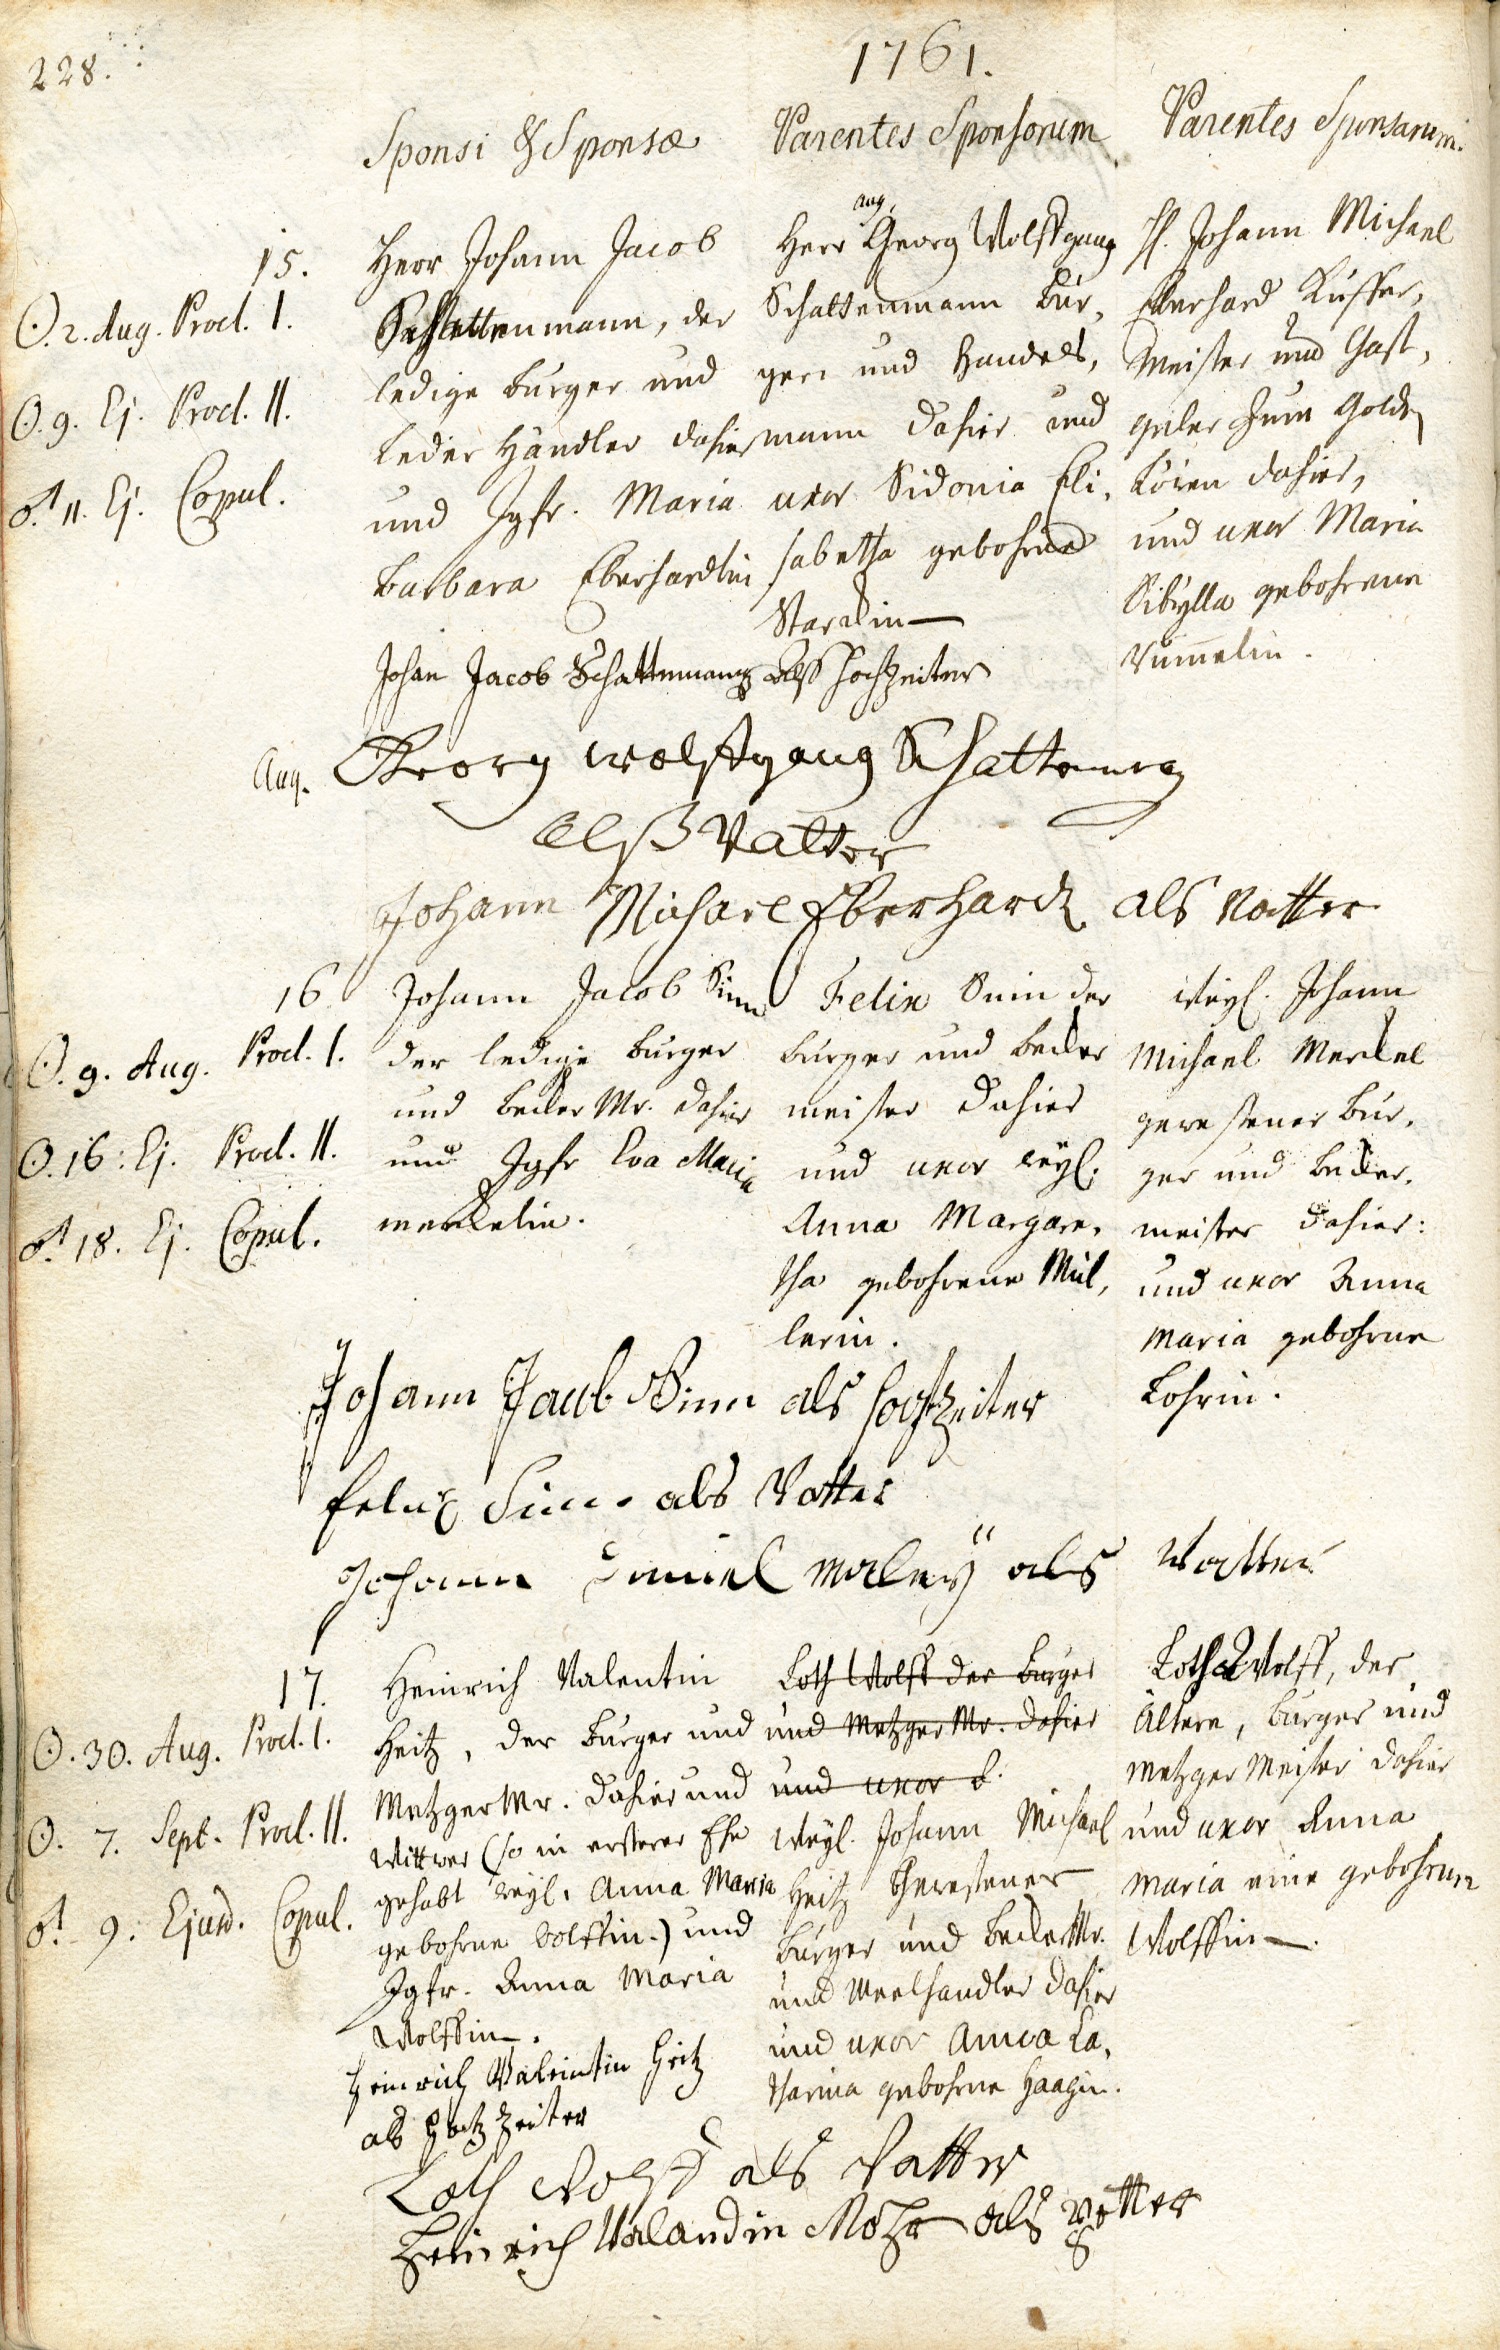 228.
1761.
Sponsi & Sponsæ
Parentes Sponsorum
Parentes Sponsarum.
15.
☉. 2. Aug. Procl. I.
☉. 9. Ej. Procl. II.
♂. 11. Ej. Copul.
Herr Johann Jacob
Schattenmann, der
ledige Burger und
Leder Händler dahier
und Jgfr. Maria
Barbara Eberhardtin
Aug.
Herr Georg Wolffgang
Schattenmann Bur,
ger und Handels,
mann dahier und
uxor Sidonia Eli,
sabetha gebohrne
Starckin
H. Johann Michael
Eberhard Kuffer,
Meister und Gast,
geber zum Golden
Löwen dahier,
und uxor Maria
Sibylla gebohrene
Rümelin.
Johan Jacob Schattenmann Alß Hochzeiter
Aug. Georg Wolffgang Schattenmann
Alß Vatter
Johann Michael Eberhardt als Vatter
16
☉. 9. Aug. Procl. I.
☉. 16. Ej. Procl. II.
♂ 18. Ej. Copul.
Johann Jacob Sinn
der ledige Burger
und Becker Mr. dahier
und Jgfr Eva Maria
Merckelin.
Felix Sinn der
Burger und Becker
meister dahier
und uxor weyl.
Anna Margare,
tha gebohrene Mül,
lerin.
Weyl. Johann
Michael Merckel
gewesener Bur,
ger und Becker,
meister dahier:
und uxor Anna
Maria gebohrne
Lohrin.
Johann Jacob Sinn als Hochzeiter
Felix Sinn als Vatter
Johann Daniel als Vatter
17.
☉. 30. Aug. Procl. I.
☉. 7. Sept. Procl. II.
♂. 9. Ejusd. Copul.
Heinrich Valentin
Heitz, der Burger und
Metzger Mr. dahier und
Wittwer (so in ersterer Ehe
gehabt weyl. Anna Maria
gebohrne Volffin.) und
Jgfr. Anna Maria
Wolffin.
Loth Wolff der Burger
und Metzger Mr. dahier
und uxor
Weyl. Johann Michael
Heitz Gewesener
Burger und Becker Mr.
und Meelhandler dahier
und uxor Anna Ca,
tharina gebohrne Haagin.
Loth Wolff, der
Ältere, Burger und
Metzger Meister dahier
und uxor Anna
Maria eine gebohrne
Wolffin.
Heinrich Valentin Heitz
als Hochzeiter
Loth Wolff als Vatter
Heinrich Valandin Mohr als Vetter